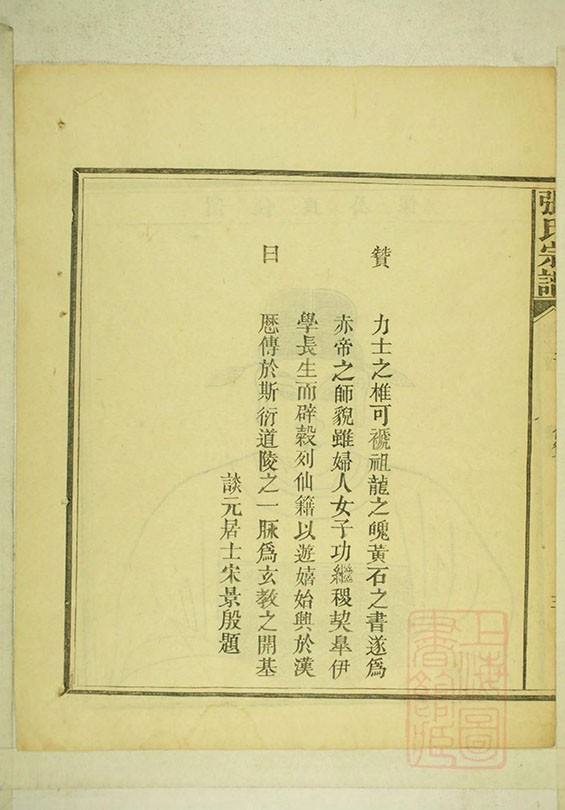 張氏宗譜
贊
曰
力士之椎可褫祖龍之魄黃石之書遂爲
赤帝之師貌雖婦人女子功繼稷契皋伊
學長生而辟穀列仙籍以遊嬉始興於漢
厯傳於斯衍道陵之一脉爲玄教之開基
談元居士宋景殷題
上海圖書館藏